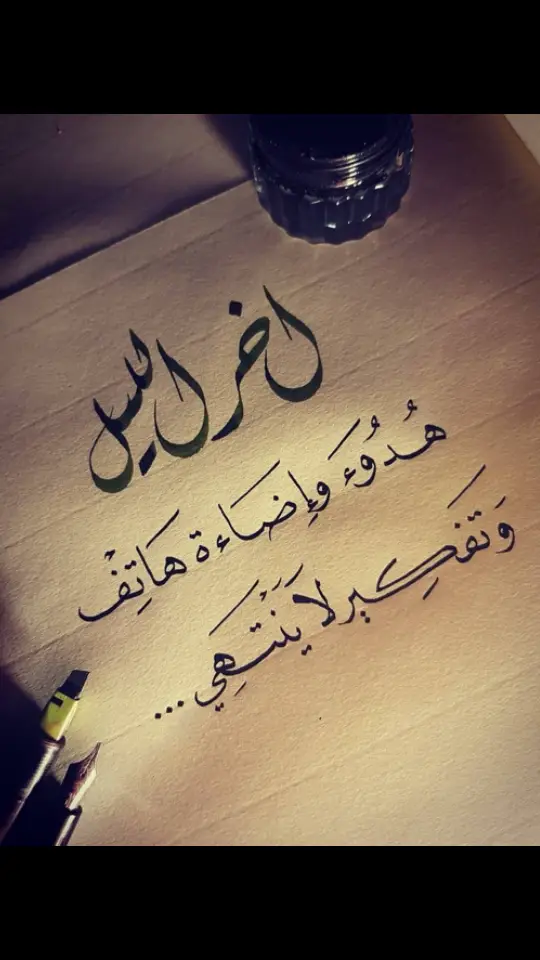 اخر الليل
هُدُوُء وَإِضَاءة هَاتِفْ
وَتفَكِير لاَ يَنْتَهِي...